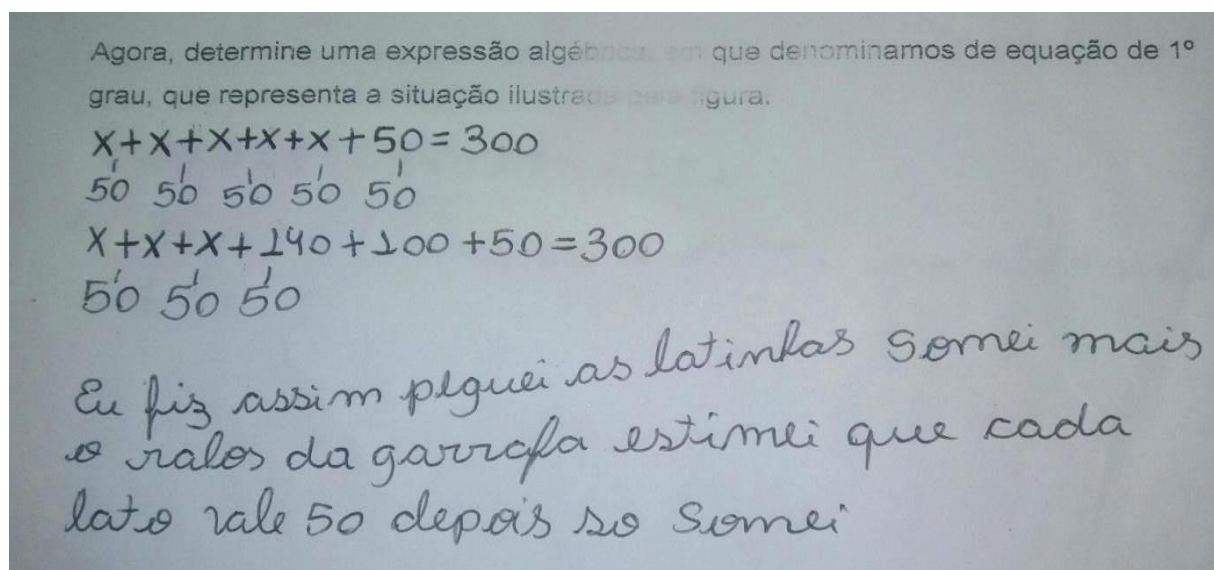 Agora, determine uma expressão algébrica, em que denominamos de equação de 1º
grau, que representa a situação ilustrada pela figura.
x+x+x+x+x+50=300
50 50 50 50 50
x+x+x+140+100+50=300
50 50 50
Eu fiz assim peguei as latinhas somei mais
o valor da garrafa estimei que cada
lata vale 50 depois so somei